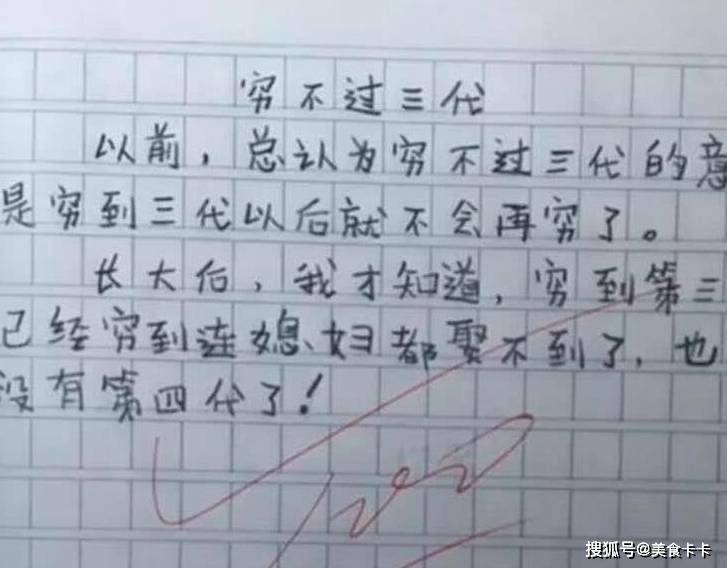 穷不过三代
以前，总认为穷不过三代的意
是穷到三代以后就不会再穷了。
长大后，我才知道，穷到第三
已经穷到连媳妇都娶不到了，也
没有第四代了！
搜狐号@美食卡卡